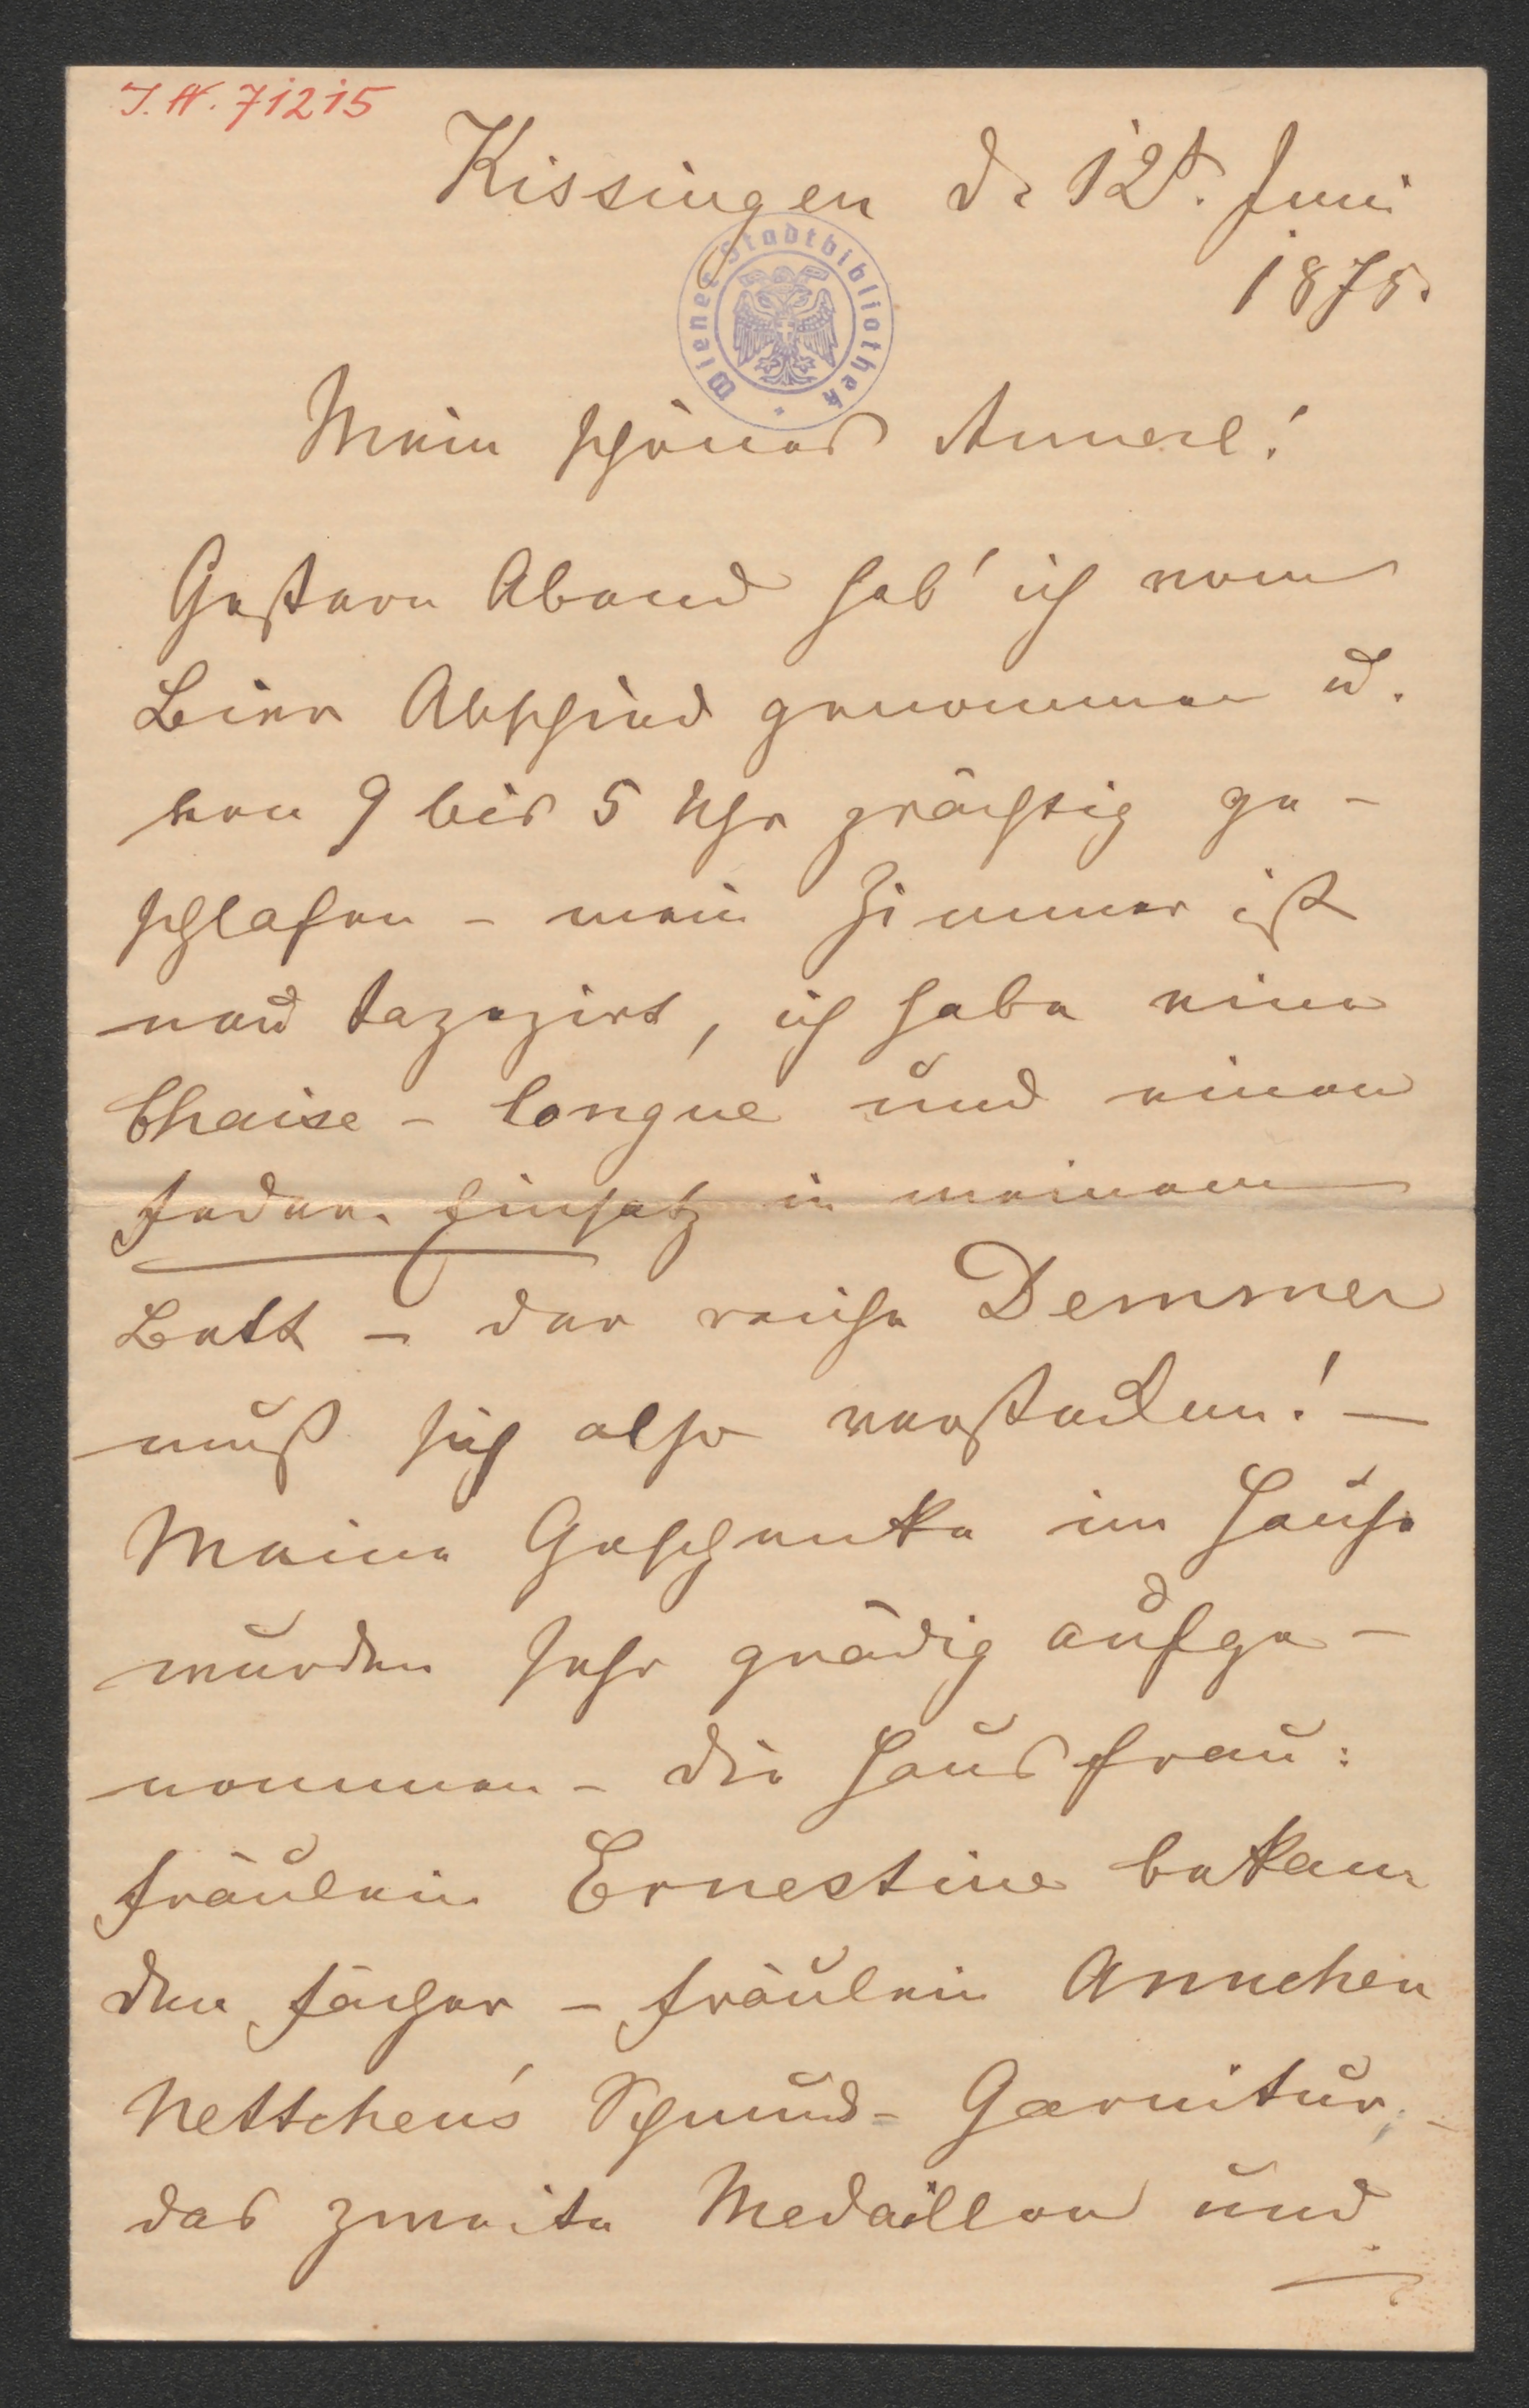 I.N. 71215
Kissingen d. 12t. Juni
1875.
Wiener Stadtbibliothek
Mein schönes Annerl!
Gestern Abend hab' ich vom
Bier Abschied genommen u.
von 9 bis 5 Uhr prächtig ge-
schlafen - mein Zimmer ist
neu tapezirt, ich habe eine
Chaise-longue und einen
Feder-Einsatz in meinem
Bett - der reiche Demmer
muß sich also verstecken! -
Meine Geschenke im Hause
wurden sehr gnädig aufge-
nommen - die Hausfrau:
Fräulein Ernestine bekam
den Fächer - Fräulein Annchen
Nettchen's Schmuck-Garnitur, -
das zweite Medaillon und